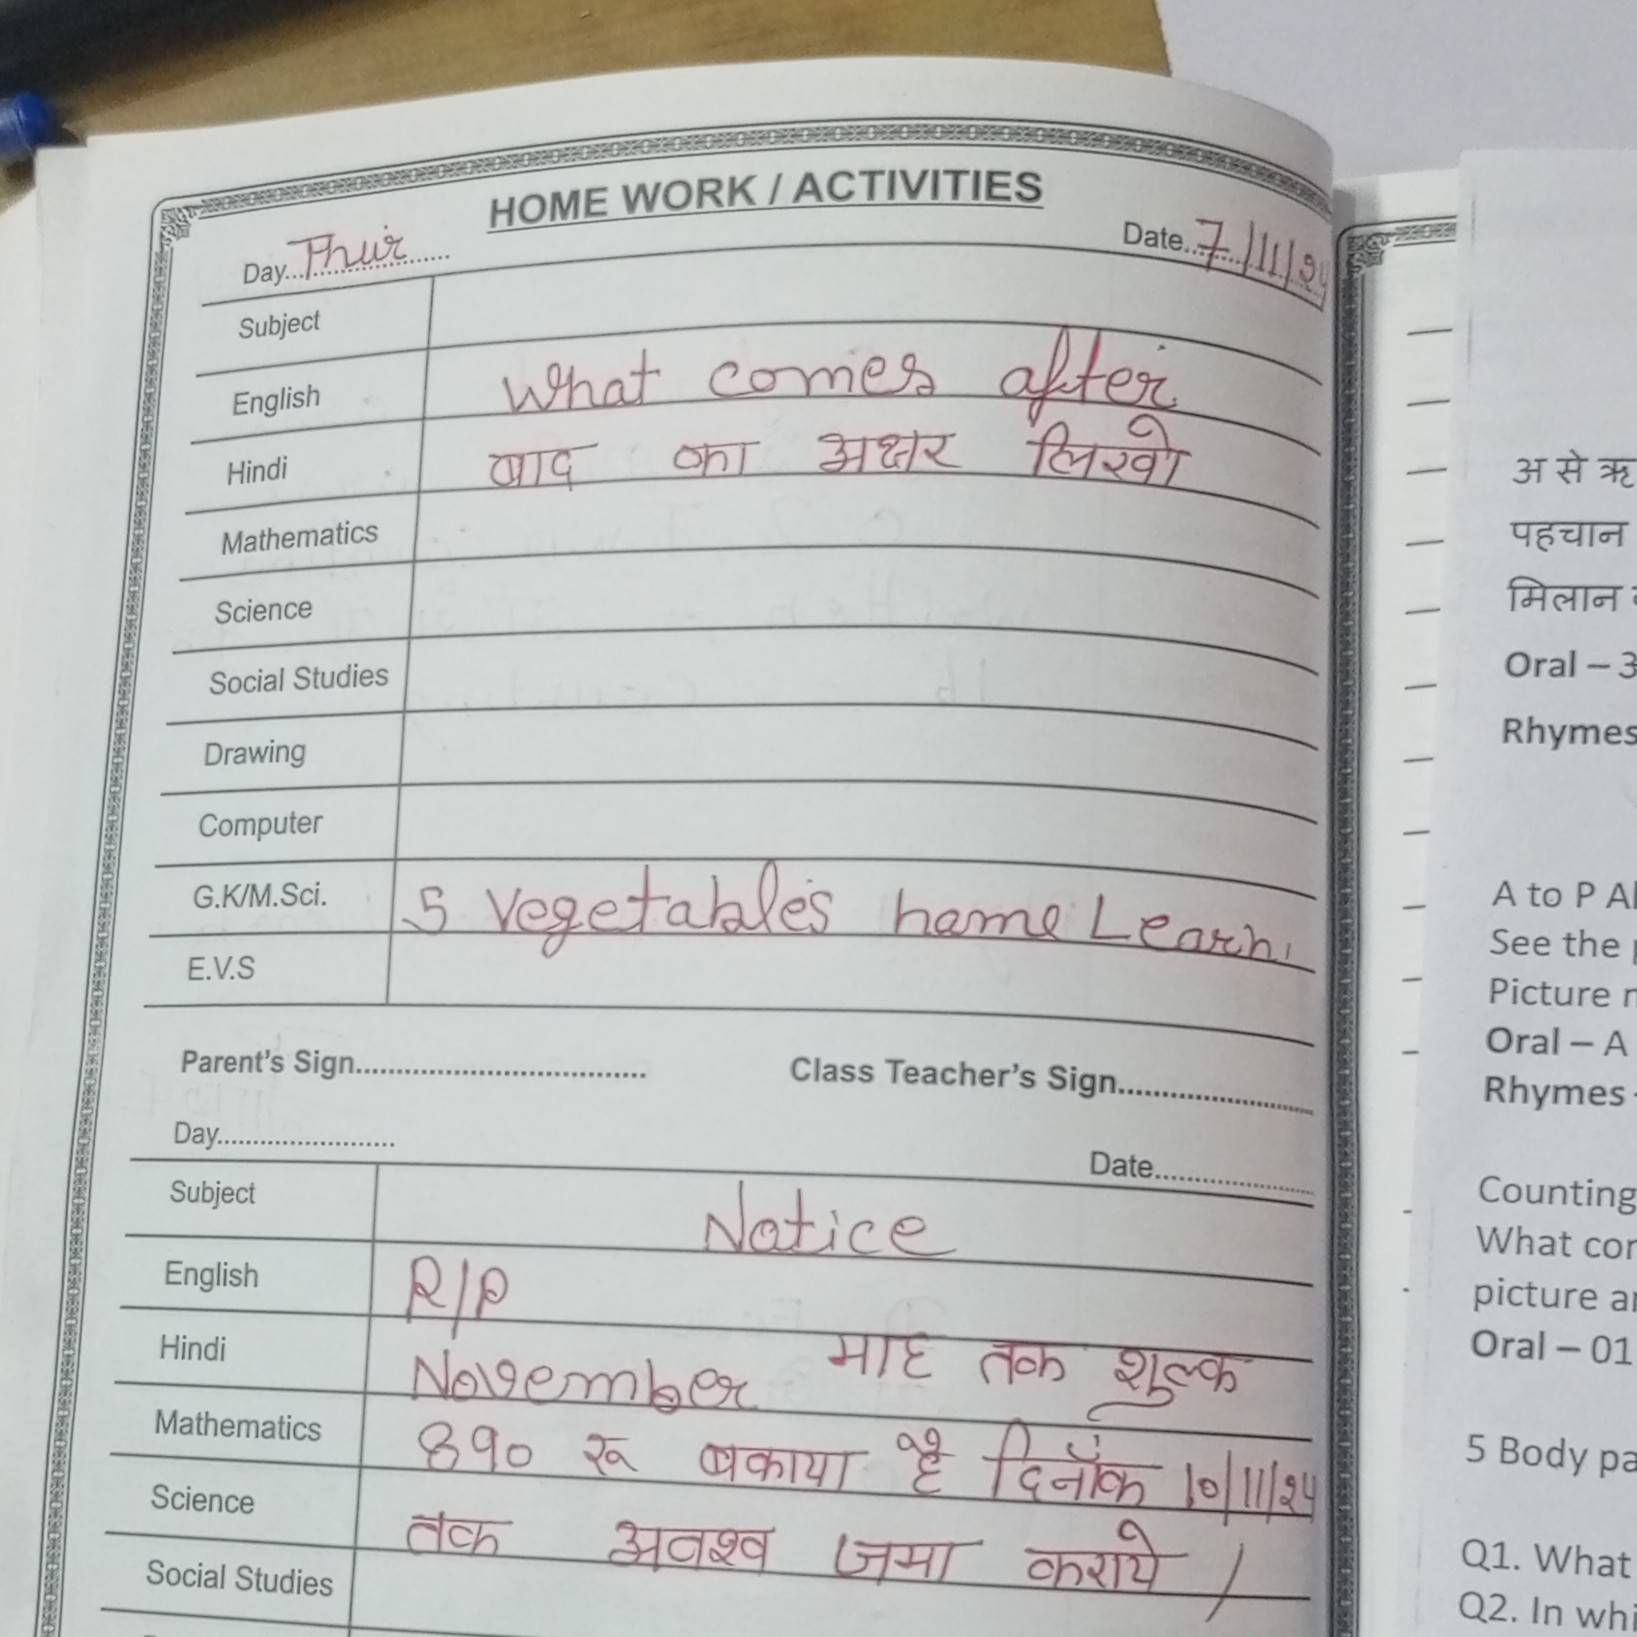 HOME WORK / ACTIVITIES
Day...Thur......... Date..7/11/24
Subject
English What comes after
Hindi बाद का अक्षर लिखो
Mathematics
Science
Social Studies
Drawing
Computer
G.K/M.Sci. 5 Vegetables name Learn
E.V.S
Parent's Sign................................ Class Teacher's Sign......................
Day...................... Date..................
Subject Notice
English R/P
Hindi November माह तक शुल्क
Mathematics 890 रू बकाया है दिनाँक 10/11/24
Science तक अवश्य जमा कराये /
Social Studies
अ से ऋ
पहचान
मिलान
Oral – 3
Rhymes
A to P Al
See the
Picture
Oral – A
Rhymes
Counting
What cor
picture a
Oral – 01
5 Body pa
Q1. What
Q2. In whi